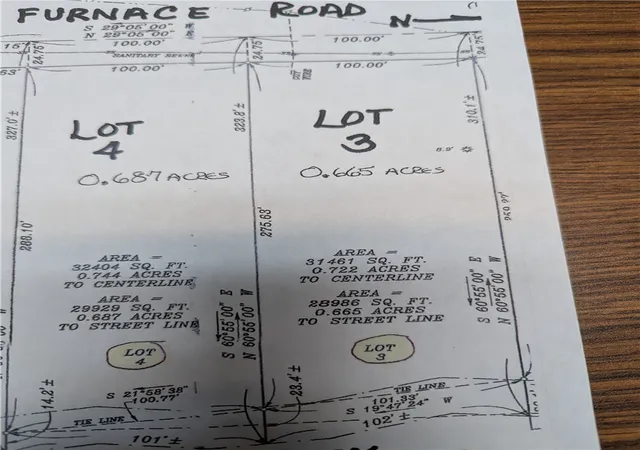 FURNACE ROAD
N
S 29°05'00"
N 29°05'00"
100.00'
100.00'
15'
24.75'
SANITARY SEWER
24.75'
24.75'
100.00'
100.00'
327.0'±
323.8'±
310.1'±
LOT
4
0.687 ACRES
LOT
3
0.665 ACRES
8.9'
288.10'
275.63'
AREA =
32404 SQ. FT.
0.744 ACRES
TO CENTERLINE
AREA =
29929 SQ. FT.
0.687 ACRES
TO STREET LINE
LOT
4
AREA =
31461 SQ. FT.
0.722 ACRES
TO CENTERLINE
AREA =
28986 SQ. FT.
0.665 ACRES
TO STREET LINE
LOT
3
S 60°55'00" E
N 60°55'00" W
S 60°55'00" E
N 60°55'00" W
14.2'±
S 21°58'38"
100.77'
TIE LINE
101'±
28.4'±
TIE LINE
101.33'
S 19°47'24" W
102'±